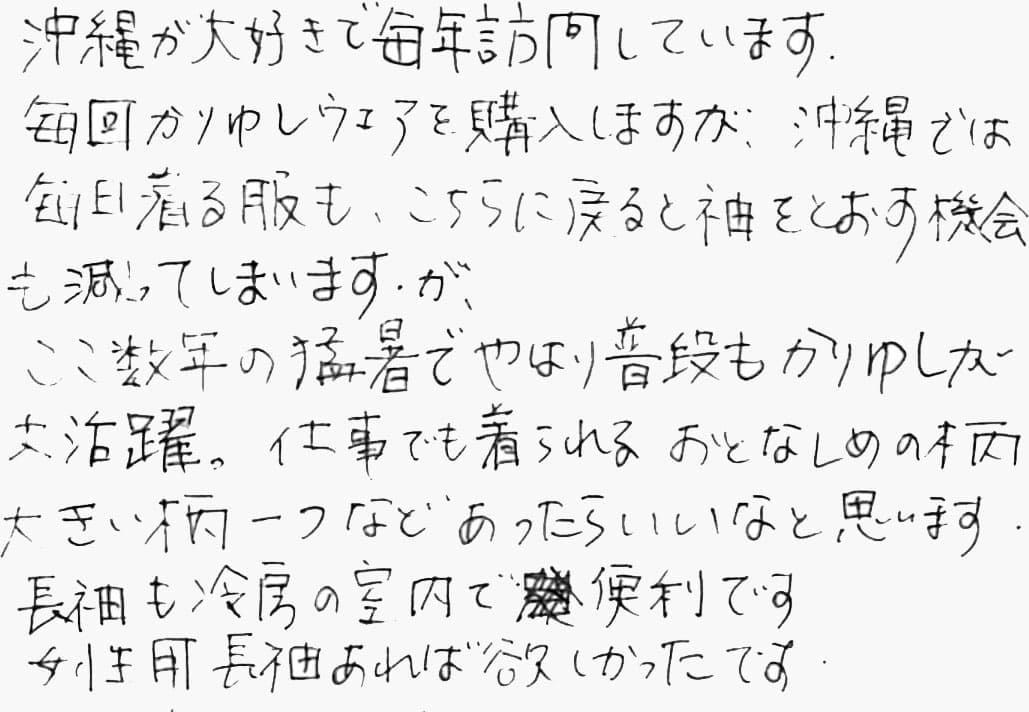 沖縄が大好きで毎年訪問しています.
毎回かりゆしウェアを購入しますが、沖縄では
毎日着る服も、こちらに戻ると袖をとおす機会
も減ってしまいます.が、
ここ数年の猛暑でやはり普段もかりゆしが
大活躍。仕事でも着られるおとなしめの柄
大きい柄一つなどあったらいいなと思います.
長袖も冷房の室内で便利です
女性用長袖あれば欲しかったです.